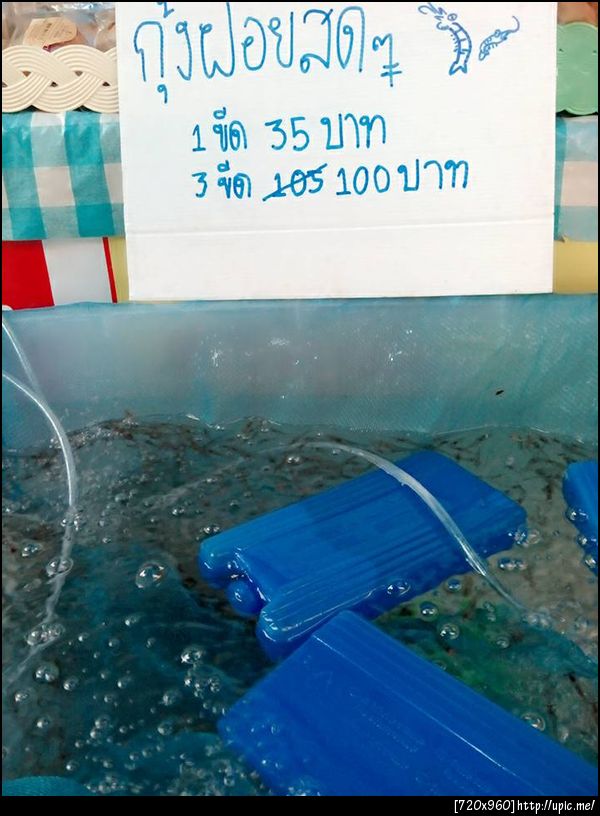 กุ้งฝอยสดๆ
1 ขีด 35 บาท
3 ขีด 105 100 บาท
[720x960]http://upic.me/